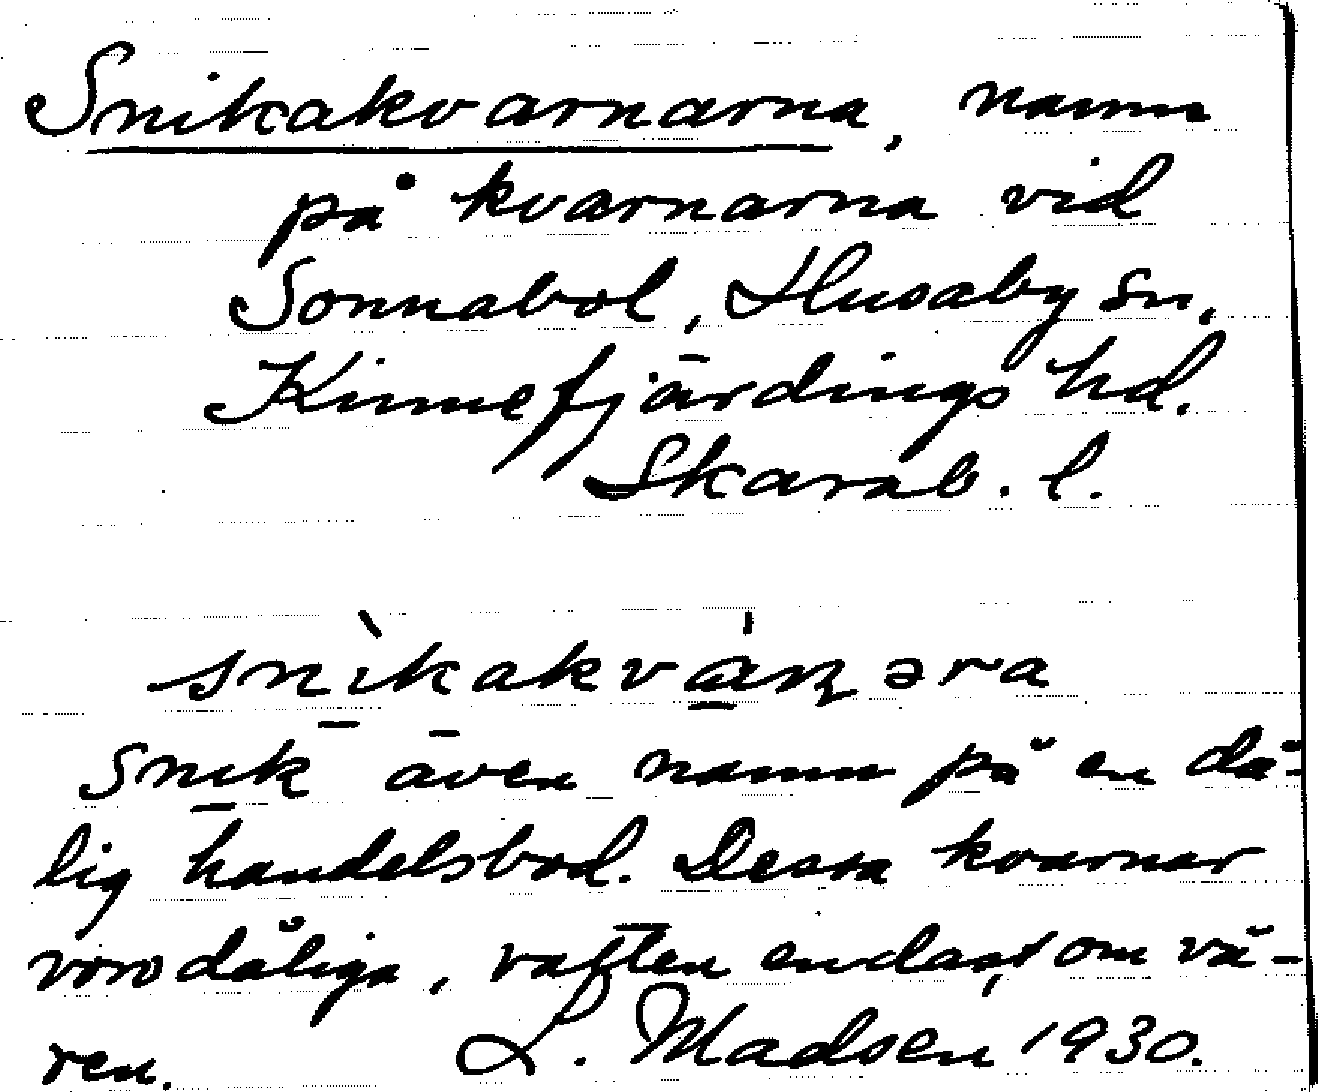 Snikakvarnarna, namn
på kvarnarna vid
Sonnabol, Husaby sn,
Kinnefjärdings hd.
Skarab. l.
snìkakvá̱ɳəra
Snik även namn på en då-
lig handelsbod. Dessa kvarnar
voro dåliga, vatten endast om vå-
ren. L. Madsen 1930.